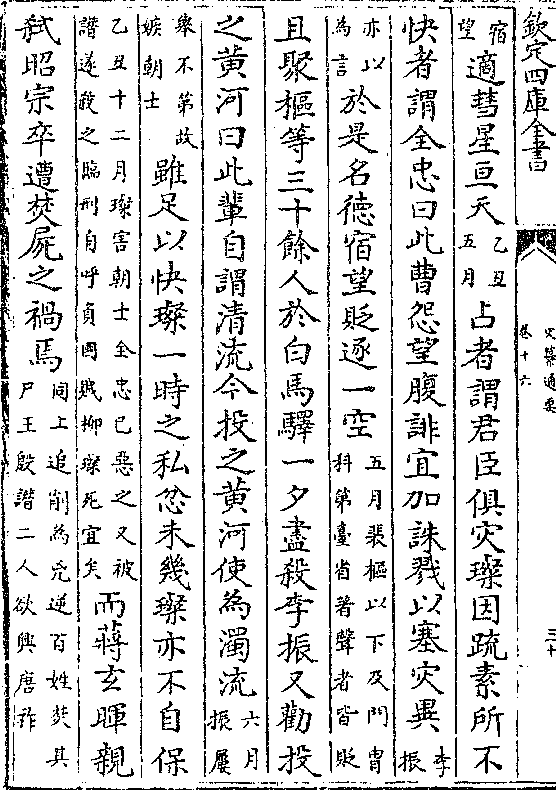 欽定四庫全書
史纂通要
卷十六
三十
宿望適彗星亘天乙丑五月占者謂君臣俱灾璨因疏素所不
快者謂全忠曰此曹怨望腹誹宜加誅戮以塞灾異李振
亦以為言於是名德宿望貶逐一空五月裴樞以下及門胄科第臺省著聲者皆貶
且聚樞等三十餘人於白馬驛一夕盡殺李振又勸投
之黄河曰此輩自謂清流今投之黄河使為濁流六月振屢
舉不第故嫉朝士雖足以快璨一時之私忿未幾璨亦不自保
乙丑十二月璨害朝士全忠已惡之又被譖遂殺之臨刑自呼負國賊柳璨死宜矣而蔣玄暉親
弑昭宗卒遭焚屍之禍焉同上追削為兇逆百姓焚其尸王殷譖二人欲興唐祚